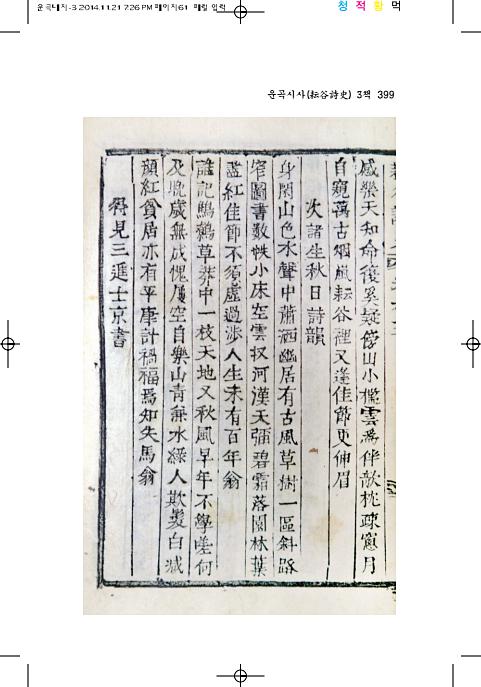 운곡내지-3 2014.11.21 7:26 PM 페이지61 매킬 입력
청 적 황 먹
운곡시사(耘谷詩史) 3책 399
感樂天知命復奚疑傍山小檻雲爲伴欹枕疎窓月
自窺萬古烟嵐耘谷裡又逢佳節更伸眉
次諸生秋日詩韻
身閑山色水聲中蕭洒幽居有古風草樹一區斜路
窄圖書數帙小床空雲収河漢天彌碧霜落園林葉
盡紅佳節不須虛過涉人生未有百年翁
誰記鷦鷯草莽中一枝天地又秋風早年不學嗟何
及晩歲無成愧屢空自樂山靑兼水綠人欺髮白減
顔紅貧居亦有平康計禍福焉知失馬翁
得見三進士京書